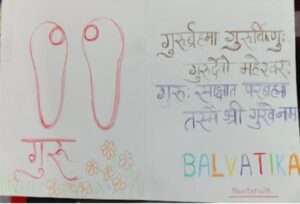 गुरु
गुरुर्ब्रह्मा गुरुर्विष्णुः
गुरुर्देवो महेश्वरः
गुरुः साक्षात परब्रह्म
तस्मै श्री गुरवेनमः
BALVATIKA